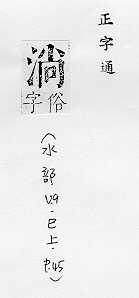 正字通
淌
俗字
(水部 V.9.巳上.P.45)